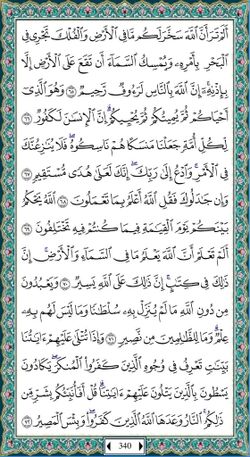 أَلَمْ تَرَ أَنَّ ٱللَّهَ سَخَّرَ لَكُم مَّا فِى ٱلْأَرْضِ وَٱلْفُلْكَ تَجْرِى فِى
ٱلْبَحْرِ بِأَمْرِهِۦ وَيُمْسِكُ ٱلسَّمَآءَ أَن تَقَعَ عَلَى ٱلْأَرْضِ إِلَّا
بِإِذْنِهِۦٓ إِنَّ ٱللَّهَ بِٱلنَّاسِ لَرَءُوفٌ رَّحِيمٌ ٦٥ وَهُوَ ٱلَّذِىٓ
أَحْيَاكُمْ ثُمَّ يُمِيتُكُمْ ثُمَّ يُحْيِيكُمْ إِنَّ ٱلْإِنسَٰنَ لَكَفُورٌ ٦٦
لِّكُلِّ أُمَّةٍ جَعَلْنَا مَنسَكًا هُمْ نَاسِكُوهُ فَلَا يُنَٰزِعُنَّكَ
فِى ٱلْأَمْرِ وَٱدْعُ إِلَىٰ رَبِّكَ إِنَّكَ لَعَلَىٰ هُدًى مُّسْتَقِيمٍ ٦٧
وَإِن جَٰدَلُوكَ فَقُلِ ٱللَّهُ أَعْلَمُ بِمَا تَعْمَلُونَ ٦٨ ٱللَّهُ يَحْكُمُ
بَيْنَكُمْ يَوْمَ ٱلْقِيَٰمَةِ فِيمَا كُنتُمْ فِيهِ تَخْتَلِفُونَ ٦٩
أَلَمْ تَعْلَمْ أَنَّ ٱللَّهَ يَعْلَمُ مَا فِى ٱلسَّمَآءِ وَٱلْأَرْضِ إِنَّ
ذَٰلِكَ فِى كِتَٰبٍ إِنَّ ذَٰلِكَ عَلَى ٱللَّهِ يَسِيرٌ ٧٠ وَيَعْبُدُونَ
مِن دُونِ ٱللَّهِ مَا لَمْ يُنَزِّلْ بِهِۦ سُلْطَٰنًا وَمَا لَيْسَ لَهُم بِهِۦ
عِلْمٌ وَمَا لِلظَّٰلِمِينَ مِن نَّصِيرٍ ٧١ وَإِذَا تُتْلَىٰ عَلَيْهِمْ ءَايَٰتُنَا
بَيِّنَٰتٍ تَعْرِفُ فِى وُجُوهِ ٱلَّذِينَ كَفَرُوا۟ ٱلْمُنكَرَ يَكَادُونَ
يَسْطُونَ بِٱلَّذِينَ يَتْلُونَ عَلَيْهِمْ ءَايَٰتِنَا قُلْ أَفَأُنَبِّئُكُم بِشَرٍّ مِّن
ذَٰلِكُمُ ٱلنَّارُ وَعَدَهَا ٱللَّهُ ٱلَّذِينَ كَفَرُوا۟ وَبِئْسَ ٱلْمَصِيرُ ٧٢
340